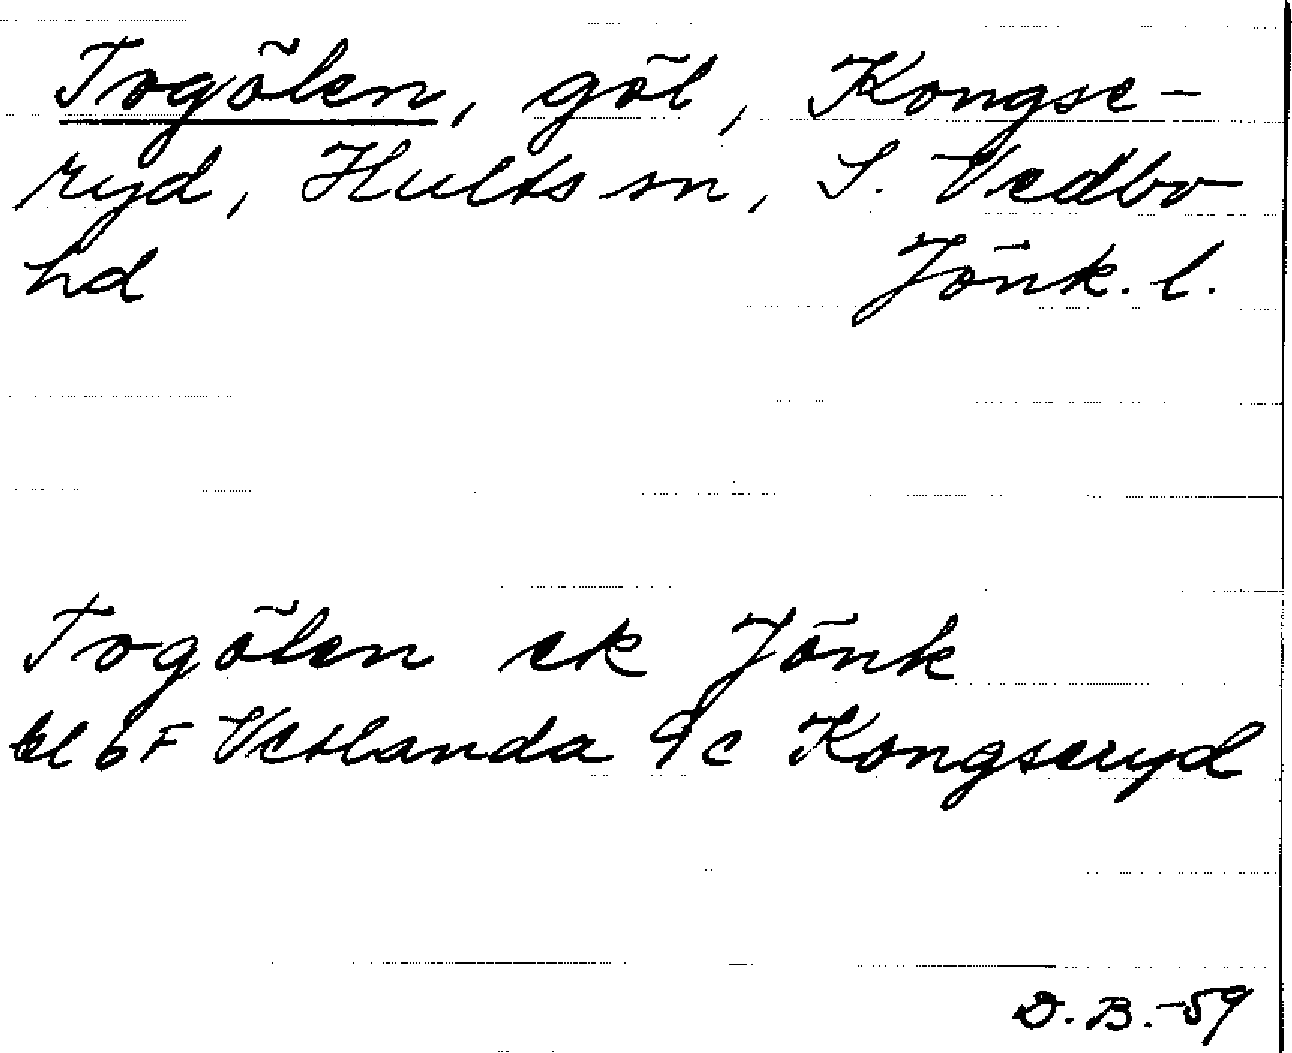 Togölen, göl, Kongse-
ryd, Hults sn, S. Vedbo
hd Jönk. l.
Togölen ek Jönk
bl 6F Vetlanda 9c Kongseryd
D. B. -59